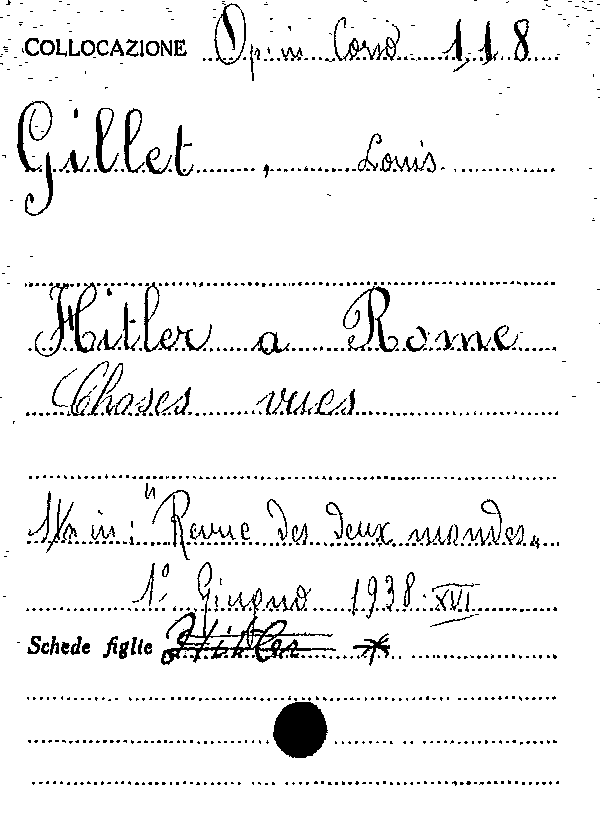 COLLOCAZIONE Op. in Corso 1.1.8
Gillet, Louis.
Hitler a Rome
Choses vues
in: "Revue des deux mondes„
1° Giugno 1938. XVI
Schede figlie Hitler *